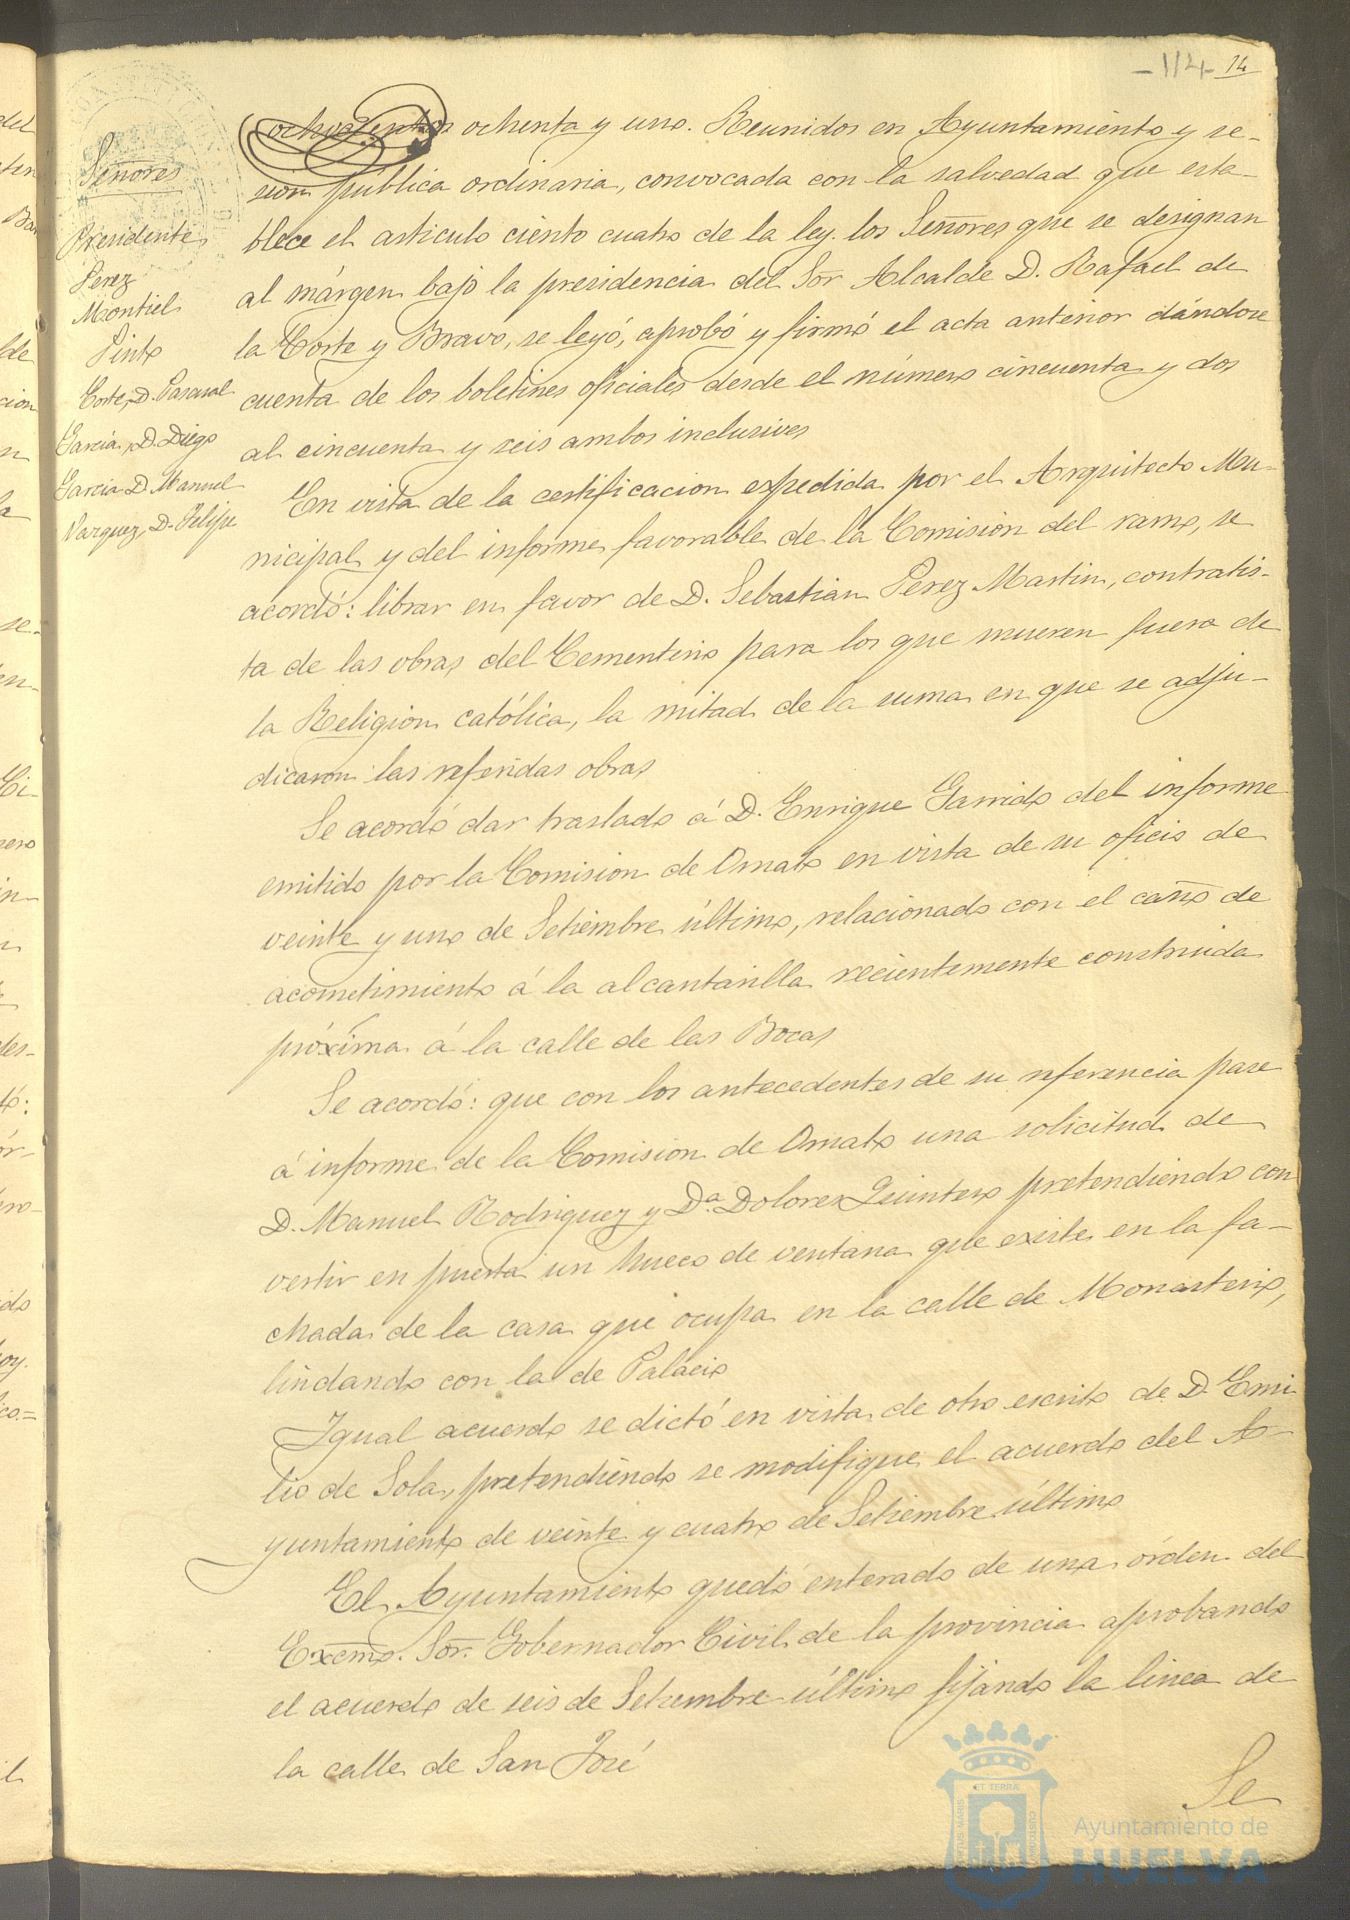 -114- 14
Señores
Presidente
Perez
Montiel
Pinto
Corte, D. Pascual
Garcia, D. Diego
Garcia D. Manuel
Vazquez, D. Felipe
ochocientos ochenta y uno. Reunidos en Ayuntamiento y se-
sion pública ordinaria, convocada con la salvedad que esta-
blece el articulo ciento cuatro de la ley. los Señores que se designan
al márgen bajo la presidencia del Sor Alcalde D. Rafael de
la Corte y Bravo, se leyó, aprobó y firmó el acta anterior dándose
cuenta de los boletines oficiales desde el número cincuenta y dos
al cincuenta y seis ambos inclusives
En vista de la certificacion expedida por el Arquitecto Mu-
nicipal y del informe favorable de la Comision del ramo, se
acordó: librar en favor de D. Sebastian Perez Martin, contratis-
ta de las obras del Cementerio para los que mueren fuera de
la Religion católica, la mitad de la suma en que se adju-
dicaron las referidas obras
Se acordó dar traslado á D. Enrique Garrido del informe
emitido por la Comision de Ornato en vista de su oficio de
veinte y uno de Setiembre último, relacionado con el caño de
acometimiento á la alcantarilla recientemente construida
próxima á la calle de las Bocas
Se acordó: que con los antecedentes de su referencia pase
á informe de la Comision de Ornato una solicitud de
D. Manuel Rodriguez y Da. Dolores Quintero pretendiendo con
vertir en puerta un hueco de ventana que existe en la fa-
chada de la casa que ocupa en la calle de Monasterio,
lindando con la de Palacio
Igual acuerdo se dictó en vista de otro escrito de D. Emi
lio de Sola, pretendiendo se modifique el acuerdo del A-
yuntamiento de veinte y cuatro de Setiembre último
El Ayuntamiento quedó enterado de una órden del
Excmo. Sor. Gobernador Civil de la provincia aprobando
el acuerdo de seis de Setiembre último fijando la linea de
la calle de San José
Se
ET TERRA
CUSTODIA
PORTUS MARIS
Ayuntamiento de
HUELVA